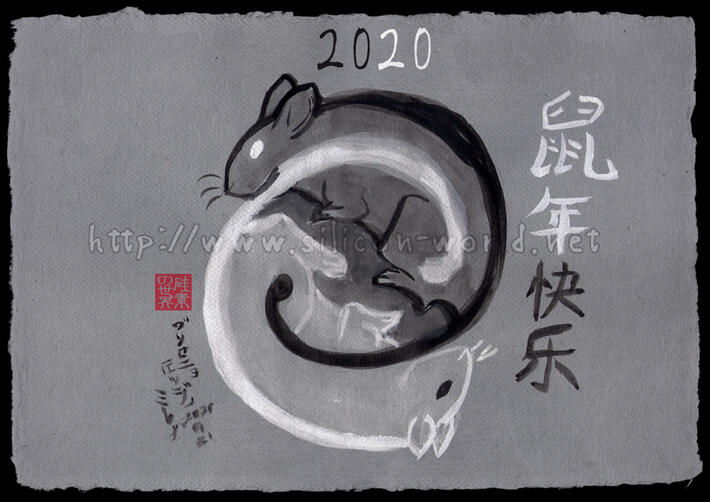 2020
鼠年快乐
http://www.silicon-world.net
硅素
の世界